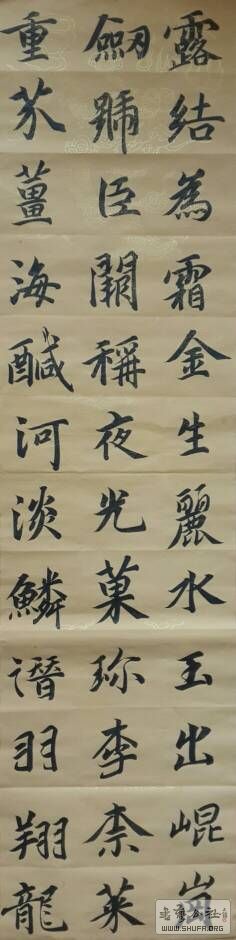 露結為霜金生麗水玉出崐崗
劒號巨闕稱夜光菓珎李柰菜
重芥薑海醎河淡鱗潛羽翔龍
WWW.SHUFA.ORG